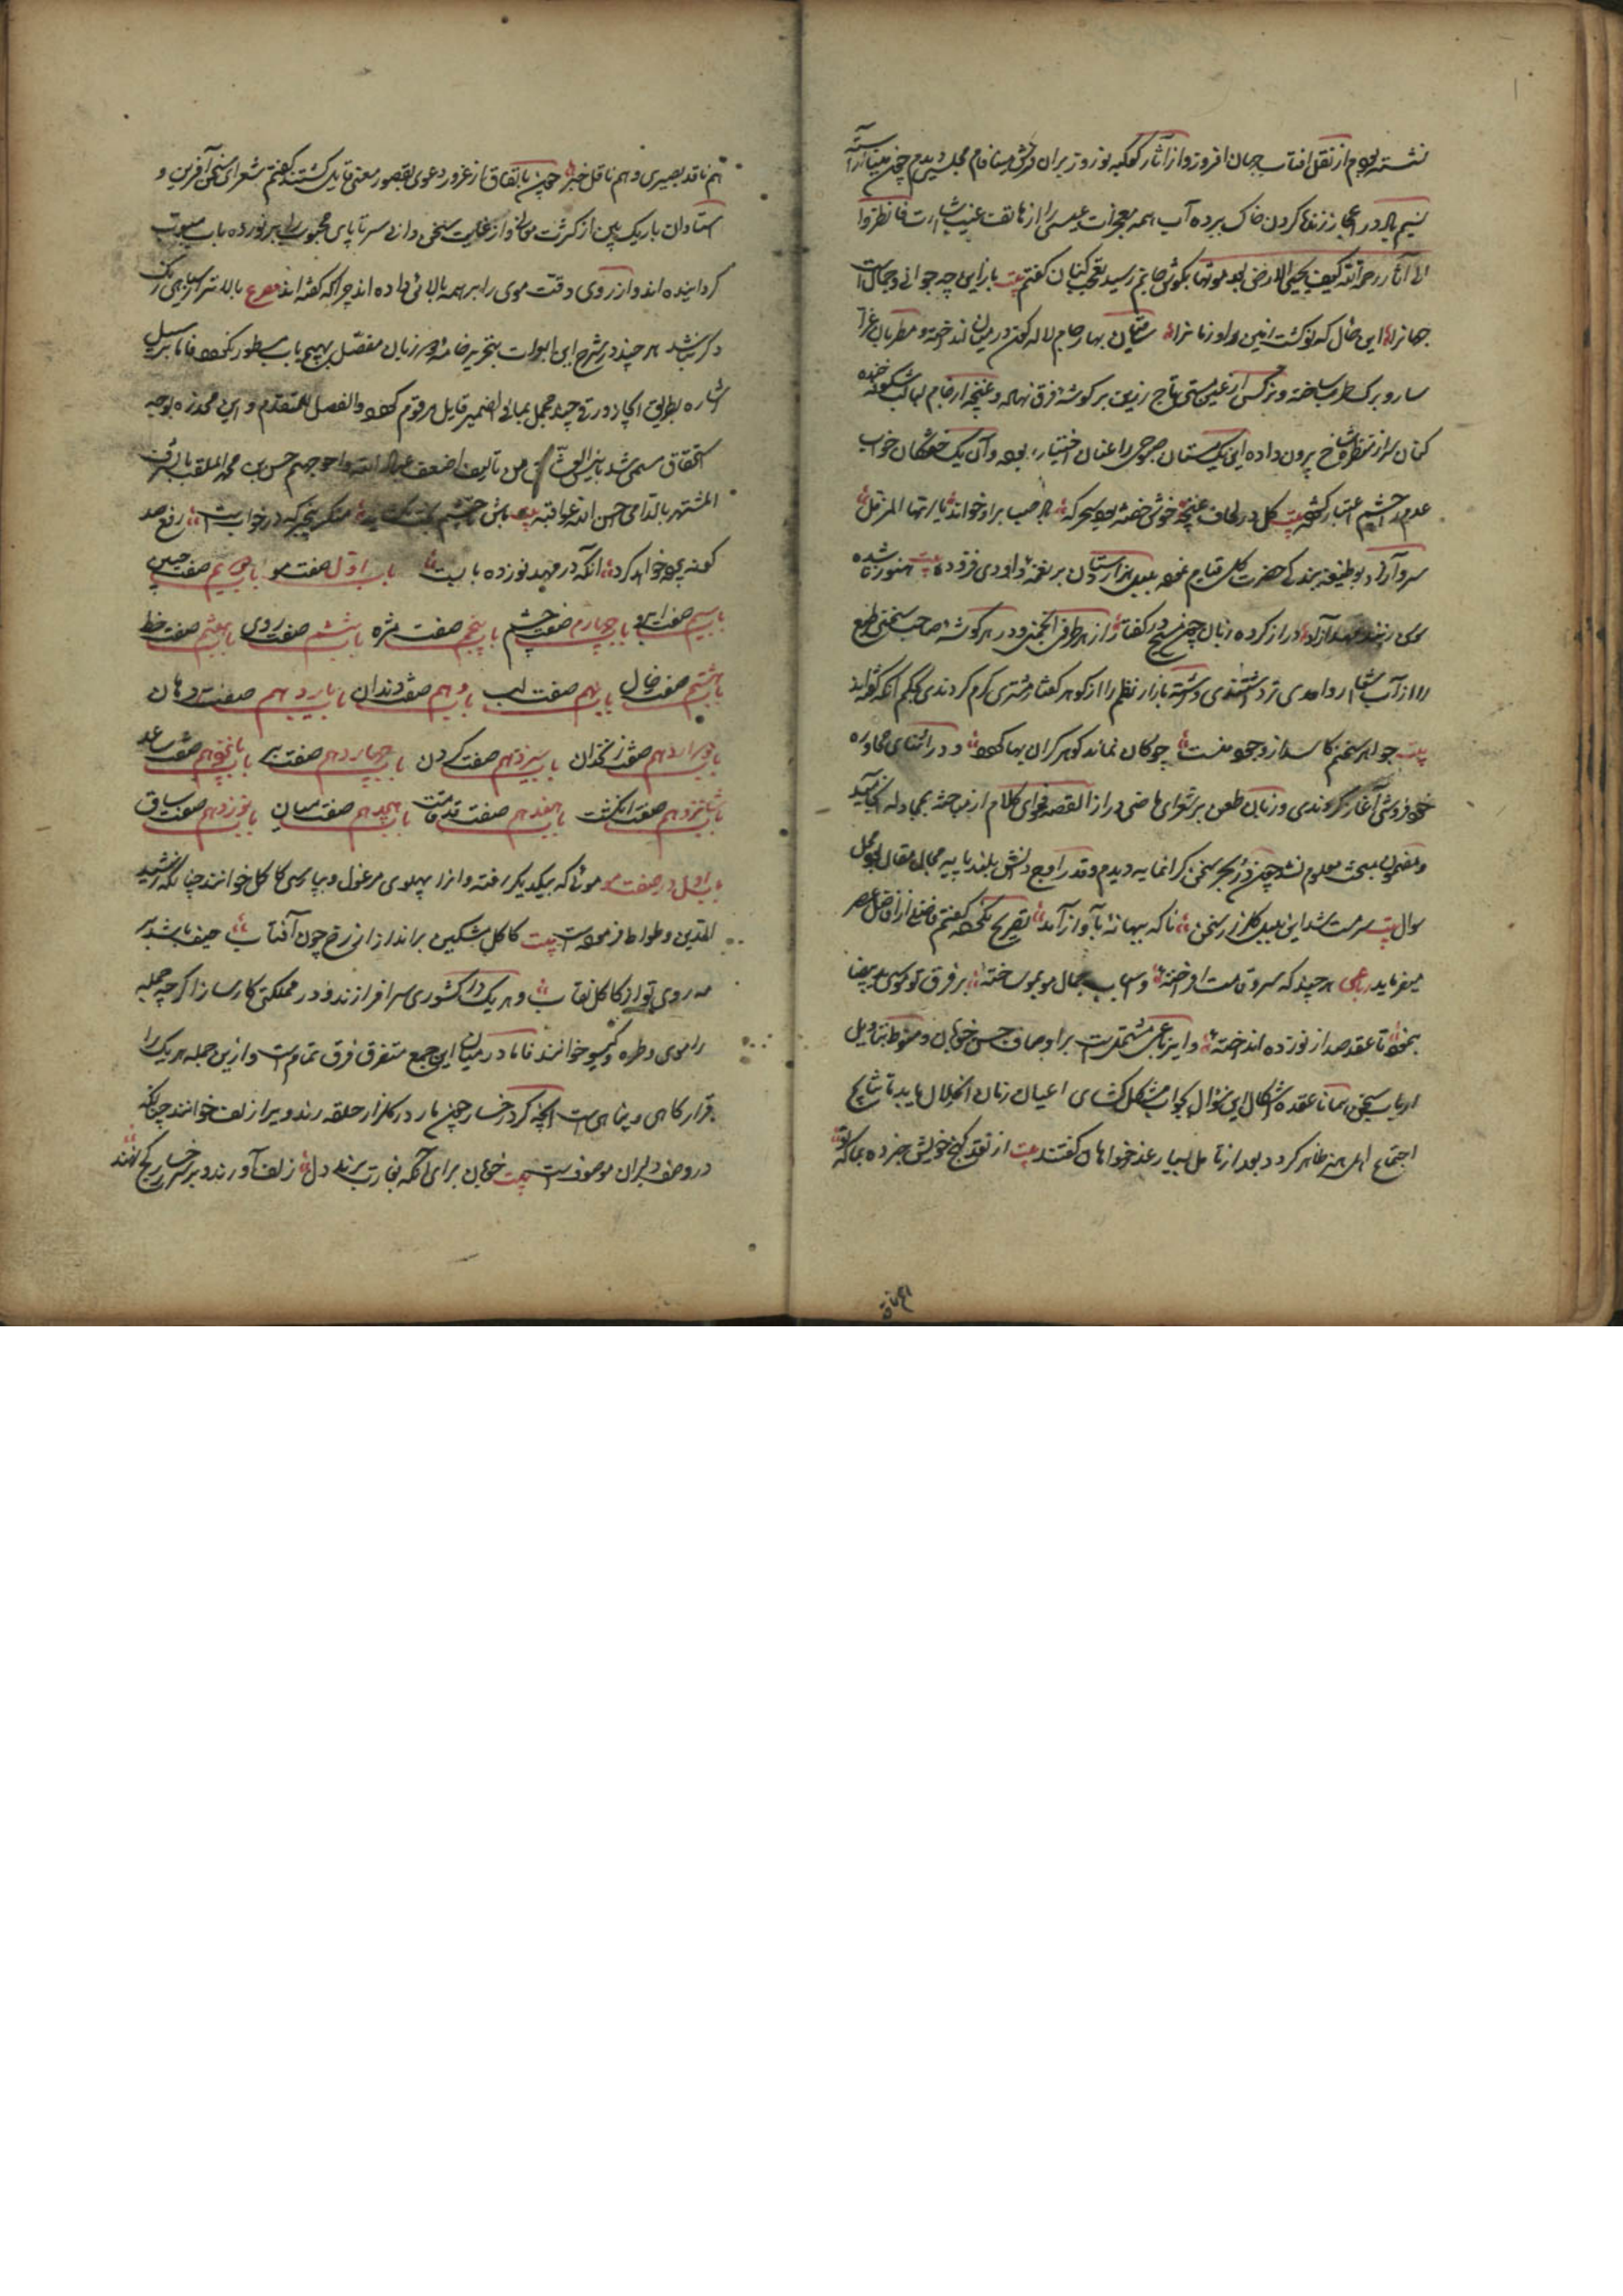 نشسته بودم از نقل افتاب جهان افروز و از آثار کوکبه نوروز بران فرش مینافام مجلس دیدم چون مینا آراسته
نسیم باد در اعجاز زنده کردن خاک ببرده آب همه معجزات عیسی را از هاتف غیب بشارت فانظروا
الی آثار رحمة الله کیف یحیی الارض بعد موتها بکوش جانم رسید تعجب کنان کفتم بیت یا رب این چه جوانی و جمالست
جهانرا این حال که نو کشت زمین را و زمانرا ساقیان بهار جام لاله کون در میان انداخته و مطربان
سار و برک طرب ساخته و نرکس از عین مستی تاج زرین بر کوشه فرق نهاده و غنچه از جام لبالب شکوفه خنده
کنان سر از منظر شاخ بیرون داده این یک مستان صبوحی را عنان اختیار ربوده و آن یک خموشان خواب
عدم را چشم اعتبار کشوده بیت کل در لحاف غنچه خوش خفته بود سحرکه باد صبا برو خواند یا ایها المزمل
سرو آزاد بوظیفه بندکی حضرت کل قیام نموده بلبل هزار دستان بر نغمه داودی فزوده بیت هنوز
سوسن آزاد دراز کرده زبان چمن در کفتار از هر طرفی انجمنی و در هر کوشه صاحب سخنی طبع
را از آب بازار نظم را از کوهر کفتار مشتری کرم کردندی بحکم آنکه کفته اند
بیت جواهر سخنم کاسد از وجود منست چو کان نماند کوهر کران بها کردد و در اثنای محاوره
خودفروشی آغاز کردندی و زبان طعن بر شعرای ماضی دراز القصه فحوای کلام از مباحثه بمجادله انجامید
و مضمون مبحث معلوم نشد چون در بحر سخن کرانمایه دیدم و قدر اوج دانش بلند پایه مجال مقال بود محل
سوال بیت سرمست شد این بلبل کلزار سخن تا که ببهانه بآواز آمد تصریح نکرده کفتم فاضلی از افاضل عصر
میفرماید رباعی هر چند که سرو قامت افراخته و اسباب جمال موبمو ساخته بر فرق تو موسی ید بیضا
بنمود تا عقد صد از نوزده انداخته و این رباعی مشتملست بر اوصاف حسن خوبان و منوط بتاویل
ارباب سخن همانا عقده اشکال این سؤال بجواب مشکل کشای اعیان زمان انحلال یابد تا نتایج
اجتماع اهل هنر ظاهر کردد بعد از تامل بسیار عذرخواهان کفتند بیت از نقد کنج خویش خبر ده بما که تو
هم ناقد بصیری و هم ناقل خبیر چون باتفاق از غرور دعوی بقصور معنی قایل کشتند کفتم شعرای سخن آفرین و
استادان باریک بین از کثرت معانی و از غایت سخن دانی سرتاپای محبوب را بر نوزده باب مبوب
کردانیده اند و از روی دقت موی را بر همه بالائی داده اند چرا که کفته اند مصرع بالاتر از سیاهی رنک
دکر نباشد هر چند در شرح این ابواب بتحریر خامه دو زبان مفصل بهیچ باب مسطور نکردد فاما بر سبیل
اشاره بطریق ایجاد ورقی چند مجمل بمافی الضمیر قایل مرقوم کردد والفضل للمتقدم و این مجدد بوجه
استحقاق مسمی شد بانیس العشاق من تالیف اضعف عباد الله و احوجهم حسن بن محمد الملقب بالشرف
المشتهر بالرامی احسن الله عواقبه بیت باش تا چشم منکر بنکر که در خوابست رفع صد
کونه بحر خواهد کرد آنکه در مهد نوزده بابست باب اول صفت مو باب دویم صفت جبین
باب سیم صفت ابرو باب چهارم صفت چشم باب پنجم صفت مژه باب ششم صفت روی باب هفتم صفت خط
باب هشتم صفت خال باب نهم صفت لب باب دهم صفت دندان باب یازدهم صفت دهان
باب دوازدهم صفت زنخدان باب سیزدهم صفت کردن باب چهاردهم صفت بر باب پانزدهم صفت ساعد
باب شانزدهم صفت انکشت باب هفدهم صفت قد و قامت باب هجدهم صفت میان باب نوزدهم صفت ساق
باب اول در صفت مو موئی که بیکدیکر رفته و انرا بپهلوی مرغول و بپارسی کاکل خوانند چنانکه رشید
الدین وطواط فرموده است بیت کاکل مشکین برانداز از رخ چون آفتاب حیف باشد بر
مه روی تو از کاکل نقاب و هر یک در کشوری سر افرازند و در مملکتی کارساز اکر چه جمله
را موی و طره و کیسو خوانند فاما در میان این جمع متفرق فرق تمام است و از این جمله هر یک را
قرارکاهی و پناهی است آنچه کرد رخسار چون مار در کلزار حلقه زند ویرا زلف خوانند چنانکه
در وصف دلبران موصوف است بیت خوبان برای آنکه بغارت برند دل زلف آورند و بر رخسار کج نهند